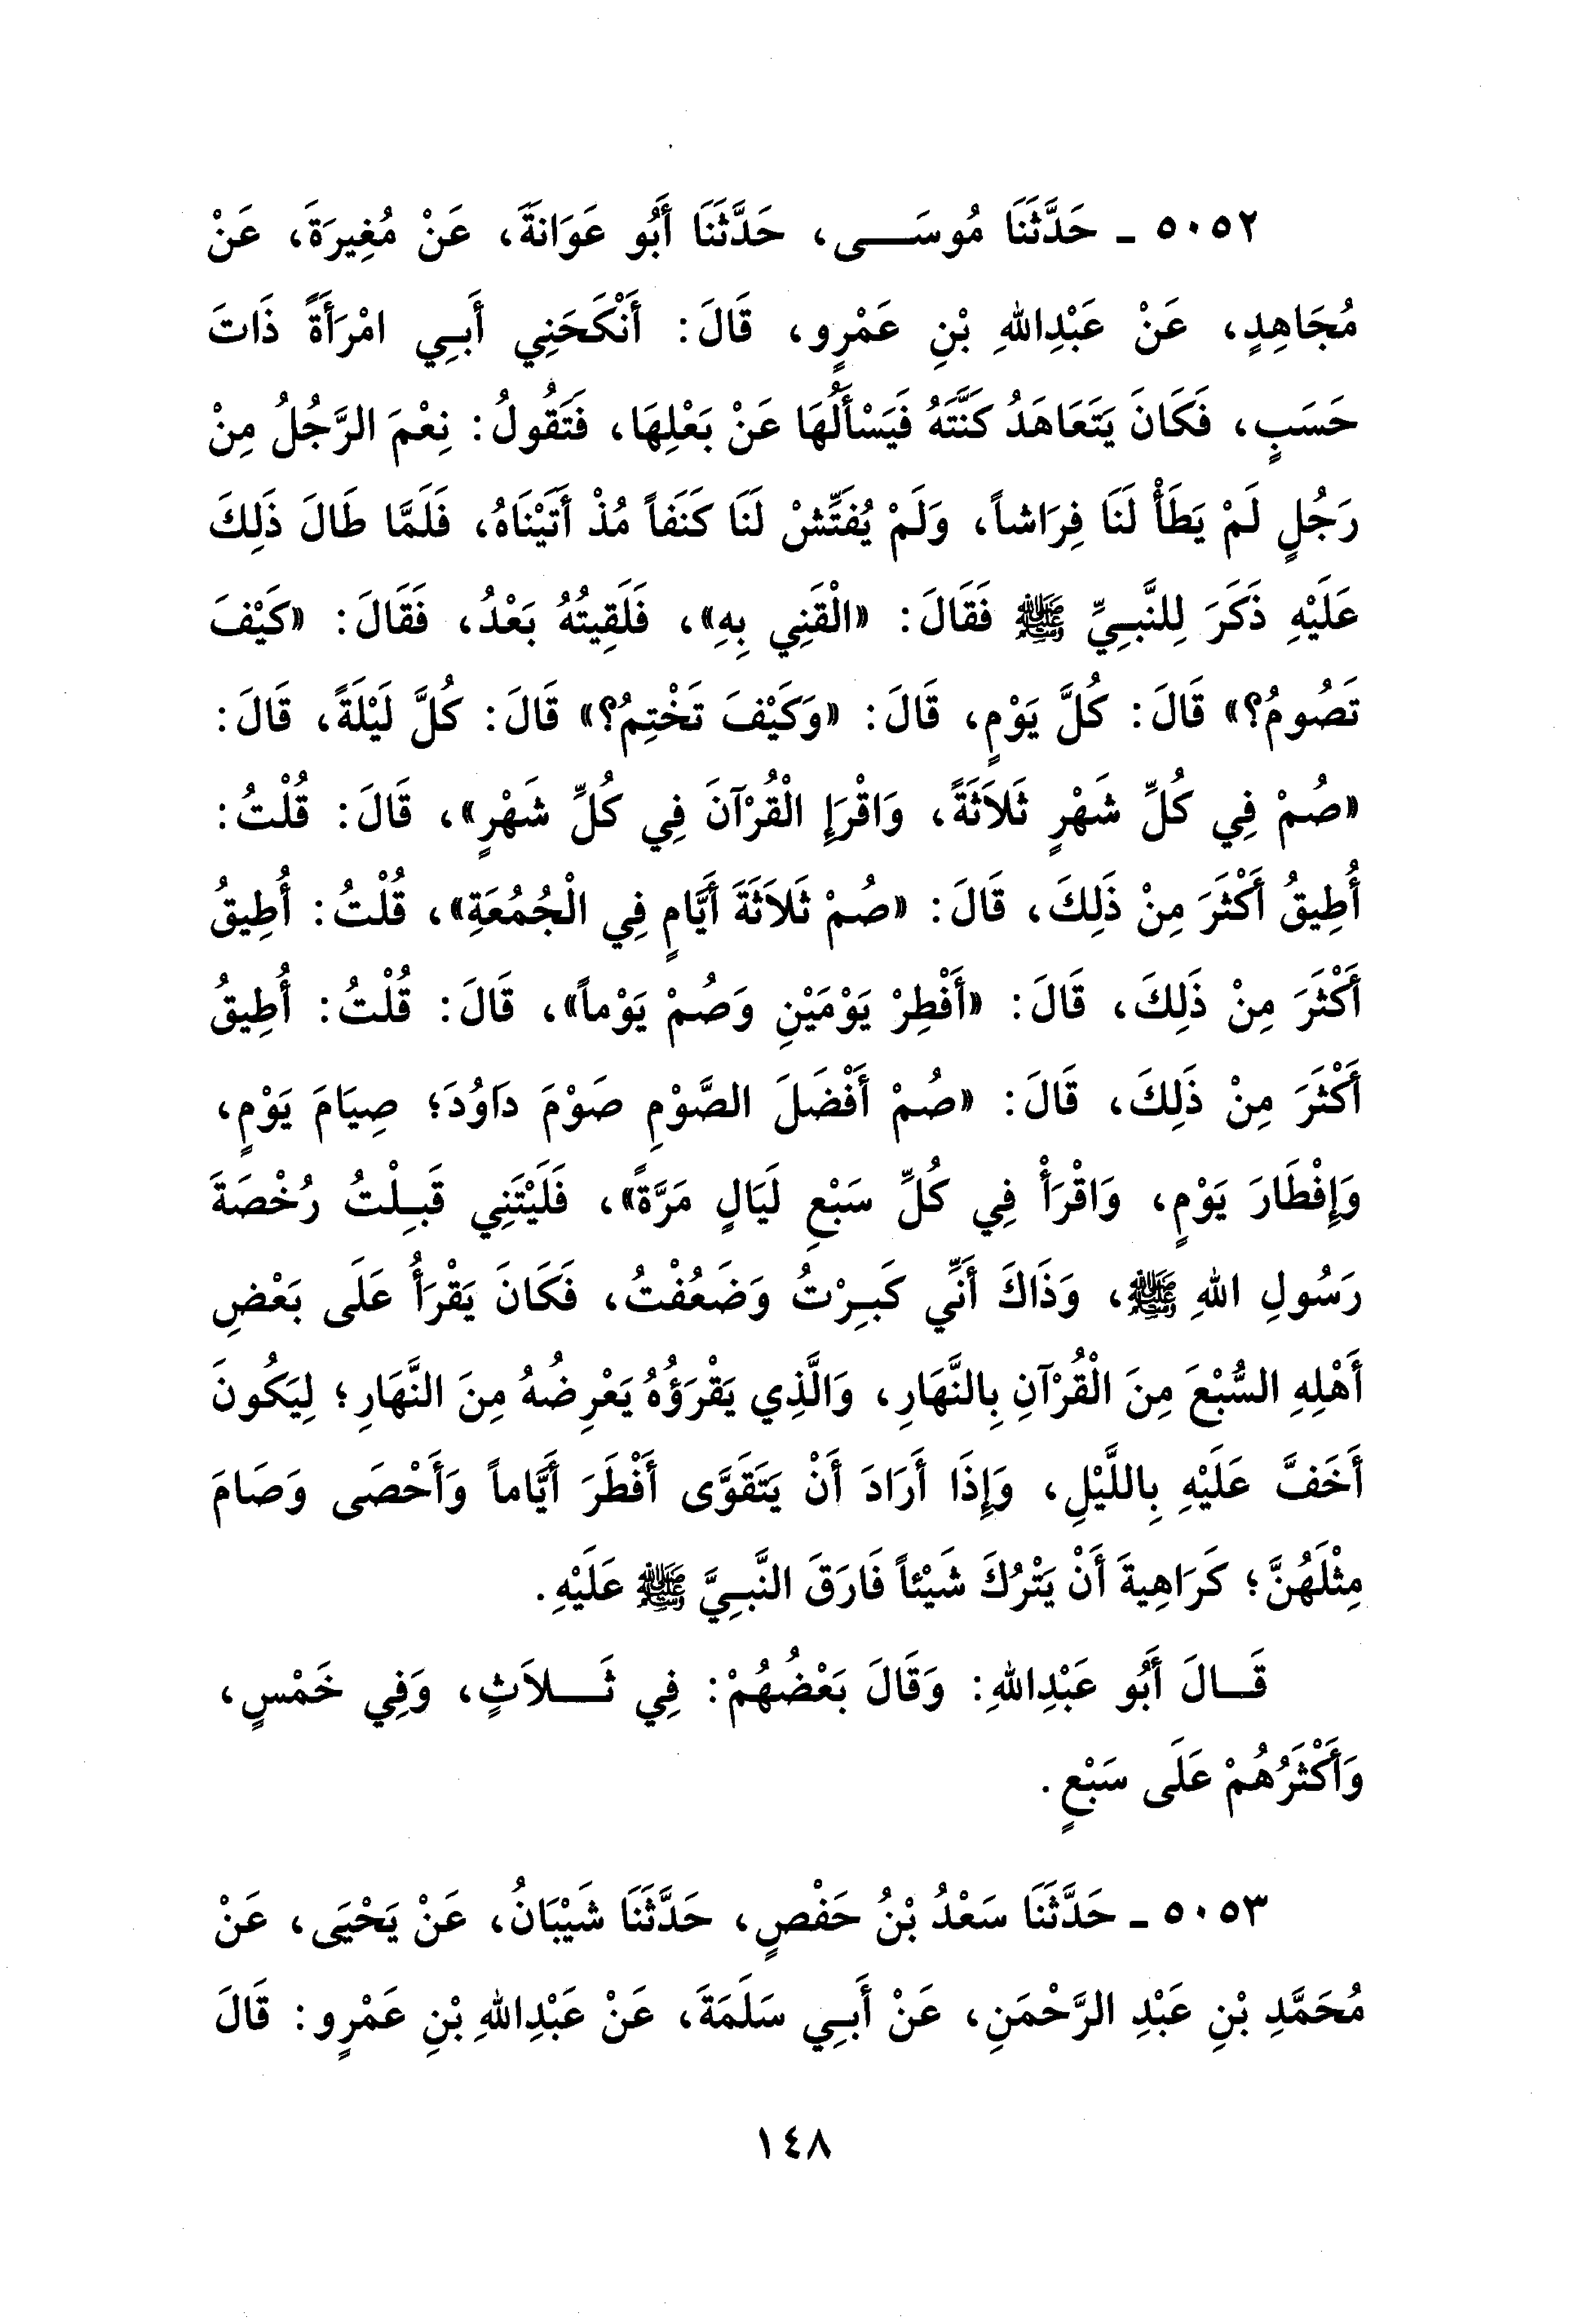 ٥٠٥٢ ـ حَدَّثَنَا مُوسَـــى، حَدَّثَنَا أَبُو عَوَانَةَ، عَنْ مُغِيرَةَ، عَنْ
مُجَاهِدٍ، عَنْ عَبْدِاللهِ بْنِ عَمْرٍو، قَالَ: أَنْكَحَنِي أَبِي امْرَأَةً ذَاتَ
حَسَبٍ، فَكَانَ يَتَعَاهَدُ كَنَّتَهُ فَيَسْأَلُهَا عَنْ بَعْلِهَا، فَتَقُولُ: نِعْمَ الرَّجُلُ مِنْ
رَجُلٍ لَمْ يَطَأْ لَنَا فِرَاشاً، وَلَمْ يُفَتِّشْ لَنَا كَنَفاً مُذْ أَتَيْنَاهُ، فَلَمَّا طَالَ ذَلِكَ
عَلَيْهِ ذَكَرَ لِلنَّبِيِّ ﷺ فَقَالَ: «الْقَنِي بِهِ»، فَلَقِيتُهُ بَعْدُ، فَقَالَ: «كَيْفَ
تَصُومُ؟» قَالَ: كُلَّ يَوْمٍ، قَالَ: «وَكَيْفَ تَخْتِمُ؟» قَالَ: كُلَّ لَيْلَةً، قَالَ:
«صُمْ فِي كُلِّ شَهْرٍ ثَلاَثَةً، وَاقْرَإِ الْقُرْآنَ فِي كُلِّ شَهْرٍ»، قَالَ: قُلْتُ:
أُطِيقُ أَكْثَرَ مِنْ ذَلِكَ، قَالَ: «صُمْ ثَلاَثَةَ أَيَّامٍ فِي الْجُمُعَةِ»، قُلْتُ: أُطِيقُ
أَكْثَرَ مِنْ ذَلِكَ، قَالَ: «أَفْطِرْ يَوْمَيْنِ وَصُمْ يَوْماً»، قَالَ: قُلْتُ: أُطِيقُ
أَكْثَرَ مِنْ ذَلِكَ، قَالَ: «صُمْ أَفْضَلَ الصَّوْمِ صَوْمَ دَاوُدَ؛ صِيَامَ يَوْمٍ،
وَإِفْطَارَ يَوْمٍ، وَاقْرَأْ فِي كُلِّ سَبْعِ لَيَالٍ مَرَّةً»، فَلَيْتَنِي قَبِلْتُ رُخْصَةَ
رَسُولِ اللهِ ﷺ، وَذَاكَ أَنِّي كَبِرْتُ وَضَعُفْتُ، فَكَانَ يَقْرَأُ عَلَى بَعْضِ
أَهْلِهِ السُّبْعَ مِنَ الْقُرْآنِ بِالنَّهَارِ، وَالَّذِي يَقْرَؤُهُ يَعْرِضُهُ مِنَ النَّهَارِ؛ لِيَكُونَ
أَخَفَّ عَلَيْهِ بِاللَّيْلِ، وَإِذَا أَرَادَ أَنْ يَتَقَوَّى أَفْطَرَ أَيَّاماً وَأَحْصَى وَصَامَ
مِثْلَهُنَّ؛ كَرَاهِيةَ أَنْ يَتْرُكَ شَيْئاً فَارَقَ النَّبِيَّ ﷺ عَلَيْهِ.
قَــالَ أَبُو عَبْدِاللهِ: وَقَالَ بَعْضُهُمْ: فِي ثَـــلاَثٍ، وَفِي خَمْسٍ،
وَأَكْثَرُهُمْ عَلَى سَبْعٍ.
٥٠٥٣ ـ حَدَّثَنَا سَعْدُ بْنُ حَفْصٍ، حَدَّثَنَا شَيْبَانُ، عَنْ يَحْيَى، عَنْ
مُحَمَّدِ بْنِ عَبْدِ الرَّحْمَنِ، عَنْ أَبِي سَلَمَةَ، عَنْ عَبْدِاللهِ بْنِ عَمْرٍو: قَالَ
١٤٨